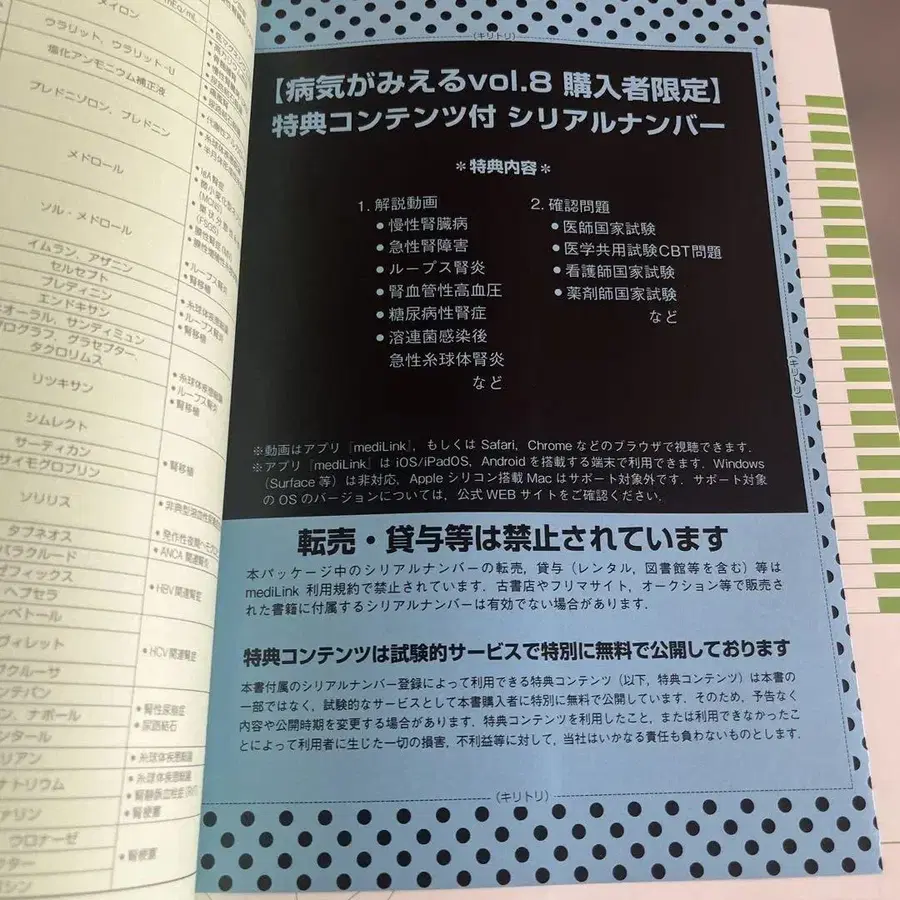 mEq/mL
メイロン
ウラリット、ウラリット-U
塩化アンモニウム補正液
プレドニゾロン、プレドニン
メドロール
ソル・メドロール
イムラン、アザニン
セルセプト
ブレディニン
エンドキサン
ネオーラル、サンディミュン
プログラフ、グラセプター、
タクロリムス
リツキサン
シムレクト
サーティカン
サイモグロブリン
ソリリス
タブネオス
バラクルード
ヘプセラ
• 糸球体疾患総論
• ループス腎炎
• 腎移植
• 腎移植
• ANCA 関連腎炎
• HBV 関連腎症
• HCV 関連腎症
• 腎性尿崩症
• 尿路結石
• 糸球体疾患総論
• 糸球体疾患総論
• 腎梗塞
ウロナーゼ
• 腎梗塞
(キリトリ)
【病気がみえるvol.8 購入者限定】
特典コンテンツ付 シリアルナンバー
＊特典内容＊
1. 解説動画
● 慢性腎臓病
● 急性腎障害
● ループス腎炎
● 腎血管性高血圧
● 糖尿病性腎症
● 溶連菌感染後
急性糸球体腎炎
など
2. 確認問題
● 医師国家試験
● 医学共用試験CBT問題
● 看護師国家試験
● 薬剤師国家試験
など
(キリトリ)
※動画はアプリ『mediLink』、もしくは Safari、Chrome などのブラウザで視聴できます．
※アプリ『mediLink』は iOS/iPadOS、Android を搭載する端末で利用できます．Windows
(Surface 等) は非対応、Apple シリコン搭載 Mac はサポート対象外です．サポート対象
の OS のバージョンについては、公式 WEB サイトをご確認ください．
転売・貸与等は禁止されています
本パッケージ中のシリアルナンバーの転売，貸与（レンタル，図書館等を含む）等は
mediLink 利用規約で禁止されています．古書店やフリマサイト，オークション等で販売さ
れた書籍に付属するシリアルナンバーは有効でない場合があります．
特典コンテンツは試験的サービスで特別に無料で公開しております
本書付属のシリアルナンバー登録によって利用できる特典コンテンツ（以下，特典コンテンツ）は本書の
一部ではなく，試験的なサービスとして本書購入者に特別に無料で公開しています．そのため，予告なく
内容や公開時期を変更する場合があります．特典コンテンツを利用したこと，または利用できなかったこ
とによって利用者に生じた一切の損害，不利益等に対して，当社はいかなる責任も負わないものとします．
(キリトリ)